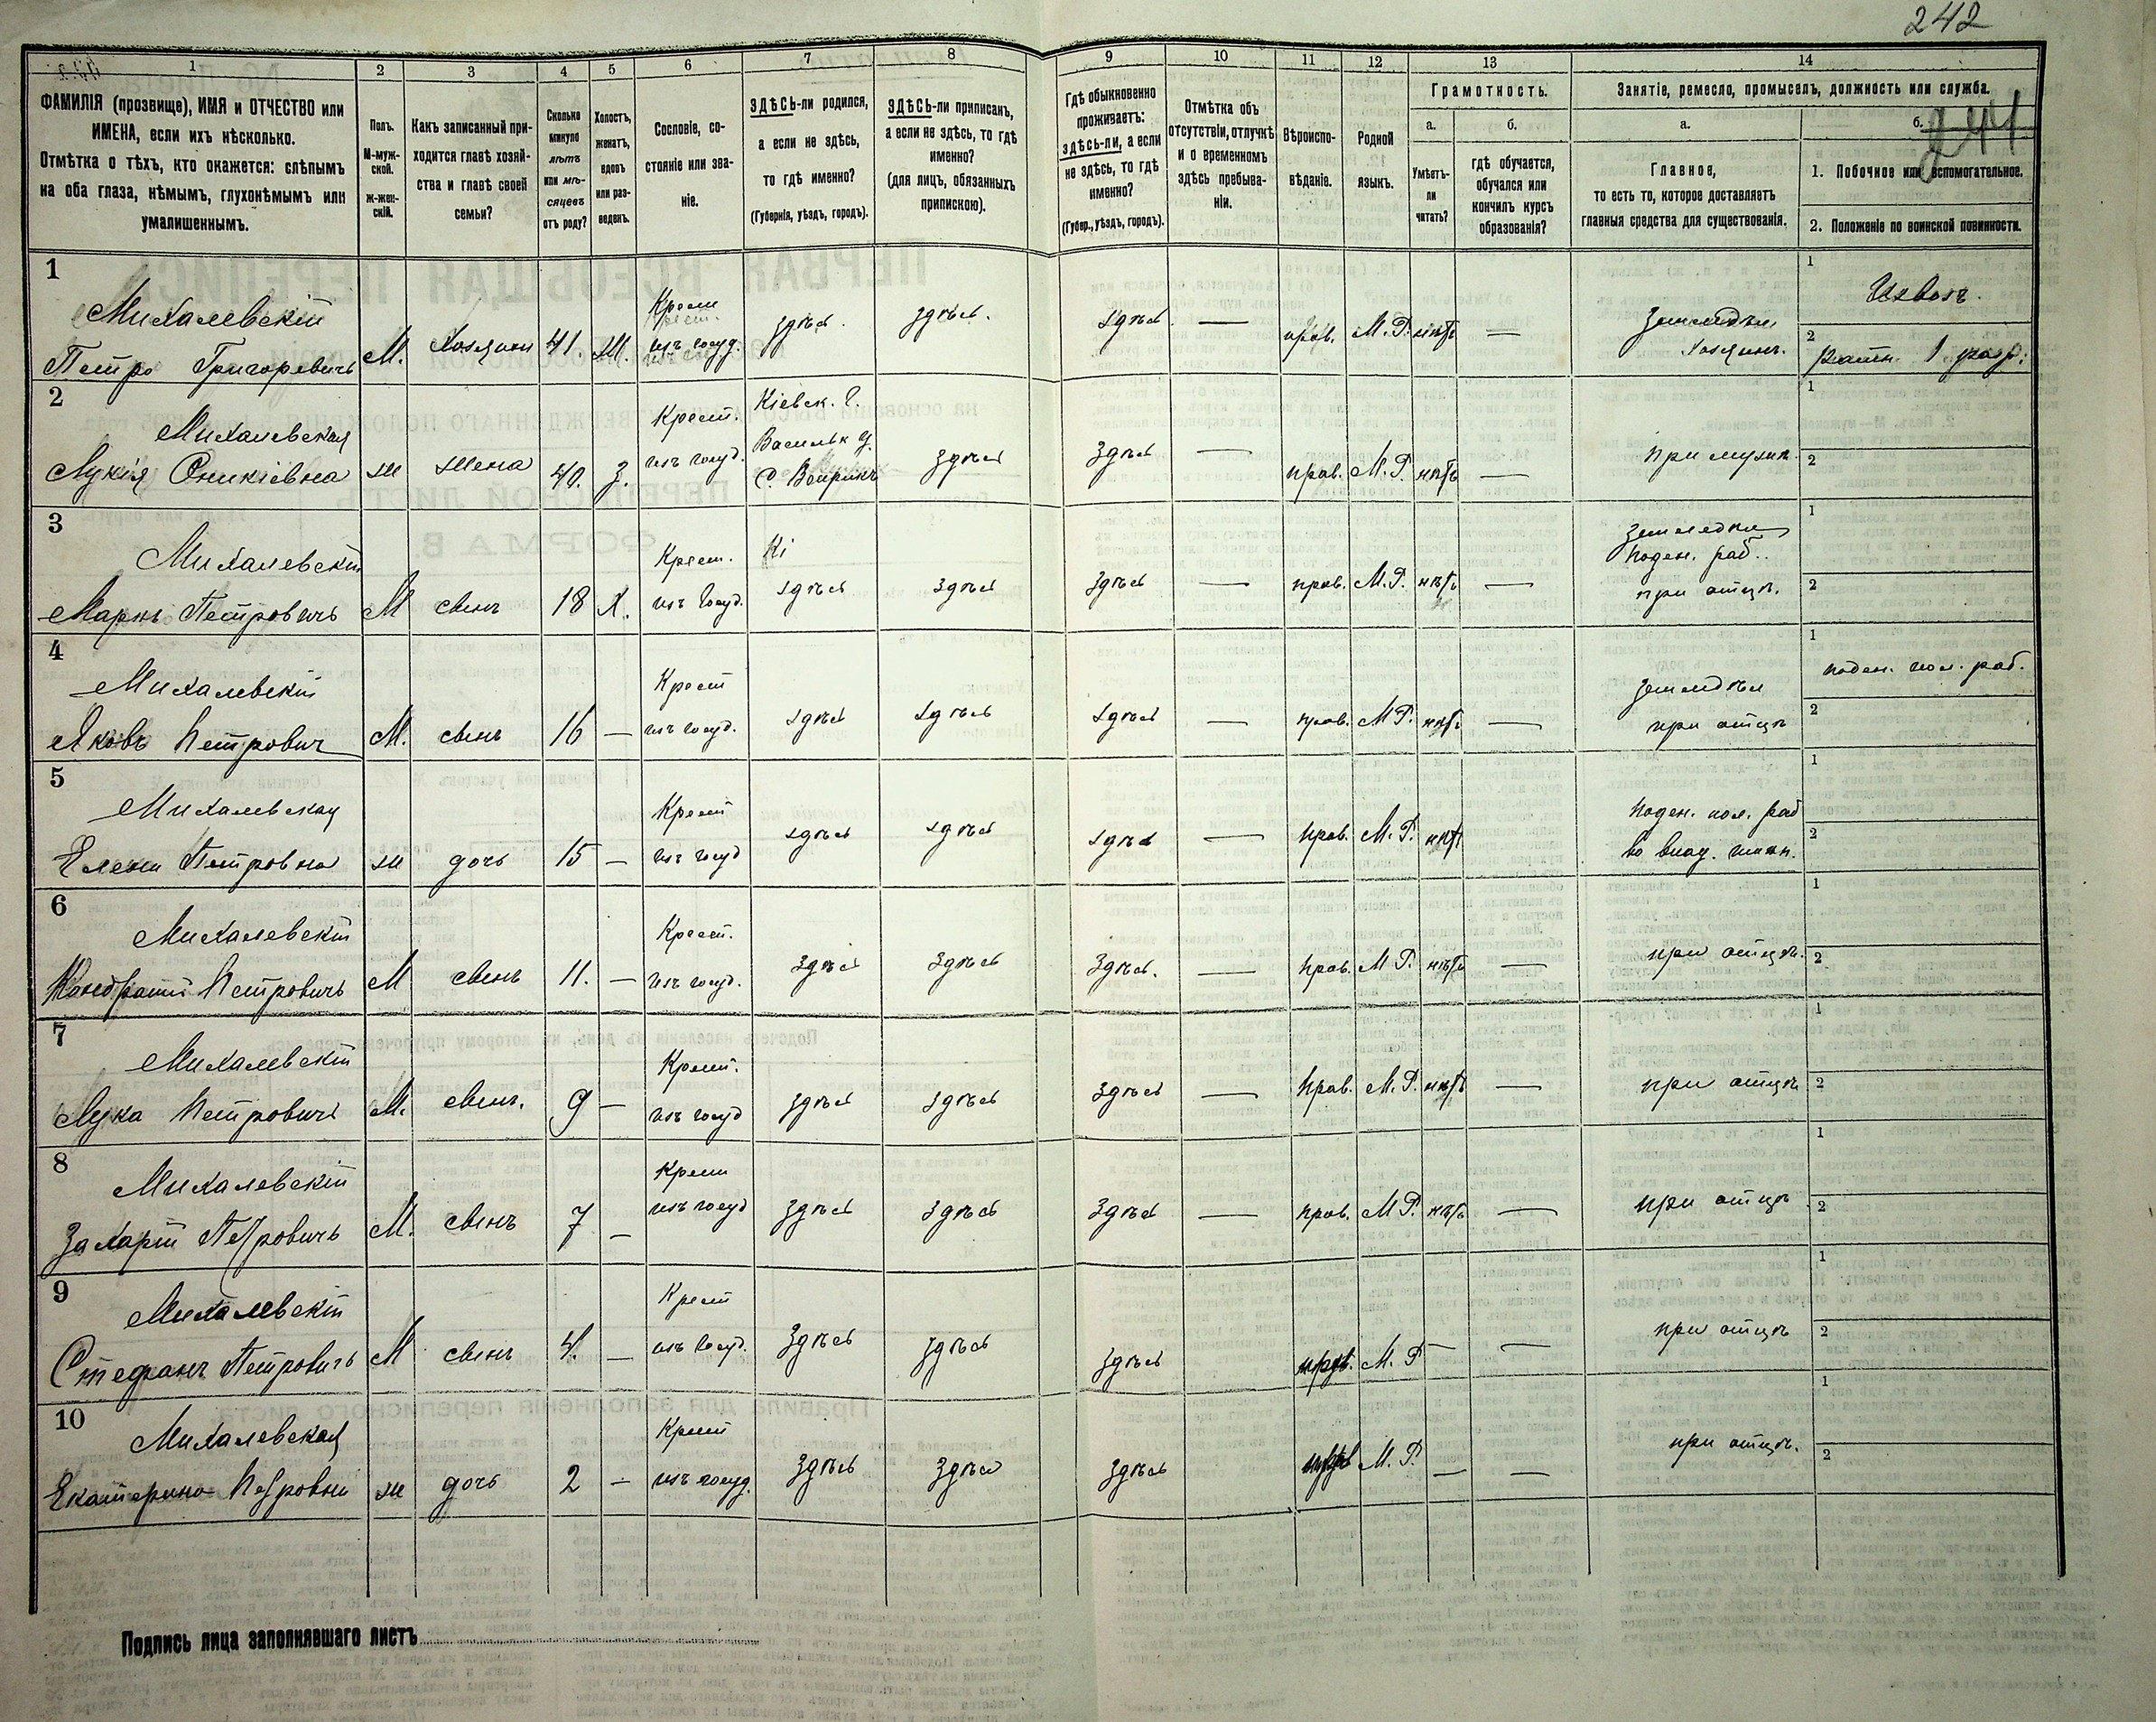 242
241
1
2
3
4
5
6
7
8
9
10
11
12
13
14
ФАМИЛІЯ (прозвище), ИМЯ и ОТЧЕСТВО или
ИМЕНА, если ихъ нѣсколько.
Отмѣтка о тѣхъ, кто окажется: слѣпымъ
на оба глаза, нѣмымъ, глухонѣмымъ или
умалишеннымъ.
Полъ.
М-муж-
ской.
ж-жен-
скій.
Какъ записанный при-
ходится главѣ хозяй-
ства и главѣ своей
семьи?
Сколько
минуло
лѣтъ
или мѣ-
сяцевъ
отъ роду?
Холостъ,
женатъ,
вдовъ
или раз-
веденъ.
Сословіе, со-
стояніе или зва-
ніе.
ЗДѢСЬ-ли родился,
а если не здѣсь,
то гдѣ именно?
(Губернія, уѣздъ, городъ).
ЗДѢСЬ-ли приписанъ,
а если не здѣсь, то гдѣ
именно?
(для лицъ, обязанныхъ
припискою).
Гдѣ обыкновенно
проживаетъ:
здѣсь-ли, а если
не здѣсь, то гдѣ
именно?
(Губер., уѣздъ, городъ).
Отмѣтка объ
отсутствіи, отлучкѣ
и о временномъ
здѣсь пребыва-
ніи.
Вѣроиспо-
вѣданіе.
Родной
языкъ.
Грамотность.
а.
Умѣетъ-
ли
читать?
б.
гдѣ обучается,
обучался или
кончилъ курсъ
образованія?
Занятіе, ремесло, промыселъ, должность или служба.
а.
Главное,
то есть то, которое доставляетъ
главныя средства для существованія.
б.
1. Побочное или вспомогательное.
2. Положеніе по воинской повинности.
1
Михалевскій
Петро Григоревичъ
М.
Хозяинъ
41.
Ж.
Крест
изъ госуд.
здѣсь.
здѣсь.
здѣсь
—
прав.
М. Р.
нѣтъ
—
Земледѣл.
Хозяинъ.
1
Извозъ.
2
Ратн. 1 разр.
2
Михалевская
Лукія Оникіевна
ж
жена
40.
З.
Крест.
изъ госуд.
Кіевск. г.
Васильк у.
здѣсь
здѣсь
—
прав.
М. Р.
нѣтъ
—
при мужѣ.
1
2
3
Михалевскій
Маркъ Петровичъ
М
сынъ
18
Х.
Крест.
изъ госуд.
Кі
здѣсь
здѣсь
здѣсь
—
прав.
М. Р.
нѣтъ
—
Земледѣл
поден. раб..
при отцѣ.
1
2
4
Михалевскій
Яковъ Петрович
М.
сынъ
16
—
Крест
изъ госуд.
здѣсь
здѣсь
здѣсь
—
прав.
М Р.
нѣтъ
—
земледѣл
при отцѣ
1
поден. пол. раб.
2
5
Михалевская
Елена Петровна
ж
дочь
15
—
Крест
изъ госуд
здѣсь
здѣсь
здѣсь
—
прав.
М. Р.
нѣт
поден. пол. раб
1
2
6
Михалевскій
Кондратій Петровичъ
М
сынъ
11.
—
Крест.
изъ госуд.
здѣсь
здѣсь
здѣсь.
—
прав.
М Р.
нѣтъ
—
при отцѣ.
1
2
7
Михалевскій
Лука Петровичъ
М.
сынъ.
9
—
Крест.
изъ госуд
здѣсь
здѣсь
здѣсь
—
прав.
М. Р.
нѣтъ
—
при отцѣ
1
2
8
Михалевскій
Захарій Петровичъ
М.
сынъ
7
—
Крест
изъ госуд
здѣсь
здѣсь
здѣсь
—
прав.
М Р.
нѣтъ
—
при отцѣ
1
2
9
Михалевскій
Стефанъ Петровичъ
М
сынъ
4.
—
Крест
изъ госуд.
здѣсь
здѣсь
здѣсь
прав.
М. Р
—
—
при отцѣ
1
2
10
Михалевская
Екатерина Петровна
ж
дочь
2
—
Крест
изъ госуд.
здѣсь
здѣсь
здѣсь
М. Р.
—
—
при отцѣ.
1
2
Подпись лица заполнявшаго листъ